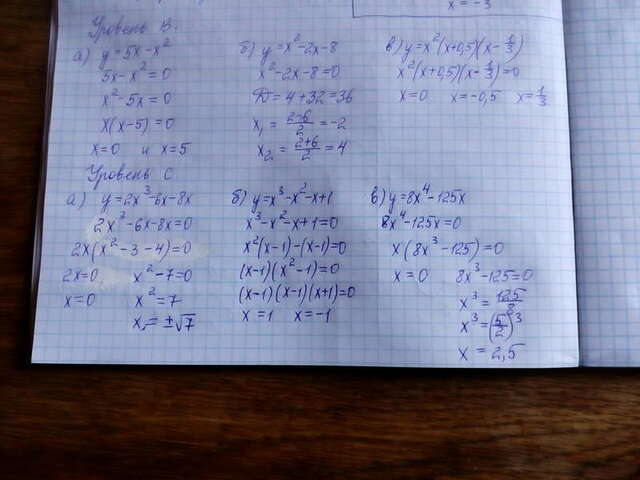 x = -3
Уровень В.
а) y = 5x - x²
5x - x² = 0
x² - 5x = 0
x(x-5) = 0
x = 0 и x = 5
б) y = x² - 2x - 8
x² - 2x - 8 = 0
D = 4 + 32 = 36
x₁ = (2-6)/2 = -2
x₂ = (2+6)/2 = 4
в) y = x²(x+0,5)(x - 1/3)
x²(x+0,5)(x - 1/3) = 0
x = 0 x = -0,5 x = 1/3
Уровень С.
а) y = 2x³ - 6x - 8x
2x³ - 6x - 8x = 0
2x(x² - 3 - 4) = 0
2x = 0 x² - 7 = 0
x = 0 x² = 7
x = ±√7
б) y = x³ - x² - x + 1
x³ - x² - x + 1 = 0
x²(x-1) - (x-1) = 0
(x-1)(x² - 1) = 0
(x-1)(x-1)(x+1) = 0
x = 1 x = -1
в) y = 8x⁴ - 125x
8x⁴ - 125x = 0
x(8x³ - 125) = 0
x = 0 8x³ - 125 = 0
x³ = 125/8
x³ = (5/2)³
x = 2,5